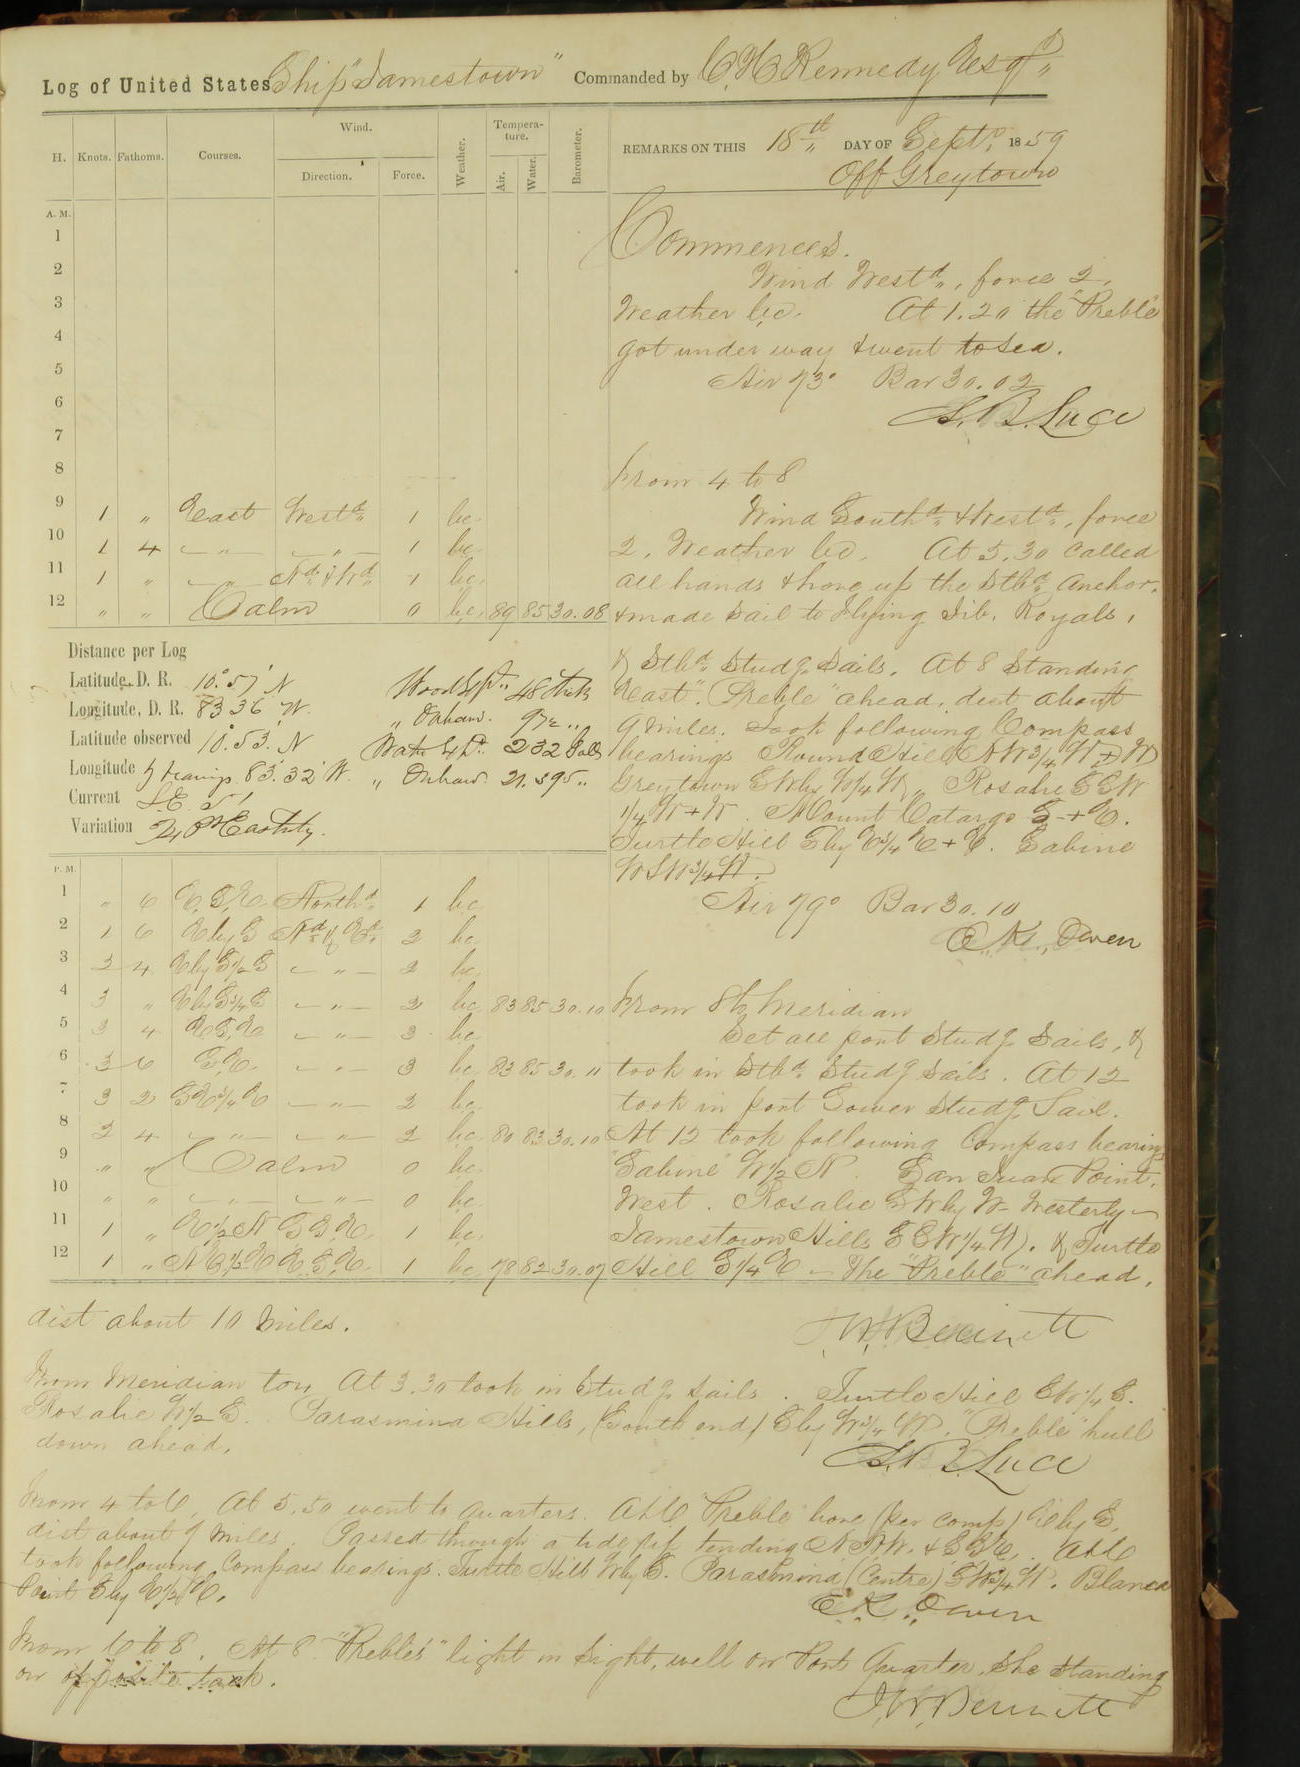 Log of United States Ship "Jamestown" Commanded by C. H. Kennedy Esqr
H. Knots. Fathoms. Courses. Wind. Direction. Force. Weather. Tempera-ture. Air. Water. Barometer.
REMARKS ON THIS 18th DAY OF Septr. 1859
Off Greytown
A. M.
1
2
3
4
5
6
7
8
9 1 " East Westd 1 bc.
10 1 4 " " 1 bc.
11 1 " " Nd & Wd 1 bc.
12 " " Calm 0 bc. 89 85 30.08
Commences.
Wind Westd, force 2.
Weather bc. At 1.20 the "Preble"
got under way & went to sea.
Air 73° Bar 30.02
S. B. Luce
From 4 to 8
Wind Southd & Westd, force
2, Weather bc. At 5.30 called
all hands & hove up the Stbd Anchor.
& made sail to Flying Jib, Royals,
& Stbd Studg Sails. At 8 Standing
East". "Preble" ahead, dist about
9 miles. Took following Compass
bearings Round Hill NW 3/4 W + W
Greytown SW by W 1/4 W, Rosalie SSW
1/4 W + W. Mount Catargo S + E.
Turtle Hill S by E 3/4 E + E. Sabine
WSW 3/4 W.
Air 79° Bar 30.10
E. K. Owen
Distance per Log
Latitude, D. R. 10°.57' N
Longitude, D. R. 83 36' W.
Latitude observed 10°.53' N
Longitude by bearings 83.32 W.
Current S.E. 51'
Variation Easterly.
Wood Expd. 48 sticks
" Onboard.
Water Expd. 232 Galls
" Onboard 21.595 "
P. M.
1 " 6 E.S.E. Northd 1 bc.
2 1 6 E by S Nd & Ed 2 bc.
3 2 4 E by S 1/2 S " 2 bc.
4 3 " E by S 3/4 S " 2 bc. 83 85 30.10
5 3 4 E S. E " 3 bc.
6 3 6 S.E. " 3 bc. 83 85 30.11
7 3 2 SE 3/4 E " 2 bc.
8 2 4 " " 2 bc. 80 83 30.10
9 " " Calm 0 bc.
10 " " " " 0 bc.
11 1 " E 1/2 N S S. E. 1 bc.
12 1 " N E 1/2 E E. S. E. 1 bc. 78 82 30.07
From 8 to Meridian
Set all port Studg Sails, &
took in Stbd Studg Sails. At 12
took in port Lower Studg Sail.
At 12 took following Compass bearings
"Sabine" W 1/2 N. San Juan Point,
West. Rosalie SW by W Westerly
Jamestown Hills SSW 1/4 W. & Turtle
Hill S 1/4 E — The "Preble" ahead,
dist about 10 miles.
J. W. Bennett
From Meridian to 4 At 3.30 took in Studg sails. Turtle Hill SW 1/4 S.
Rosalie W 1/2 S. Parasmina Hills, (South end) S by W 3/4 W. "Preble" hull
down ahead.
S. B. Luce
From 4 to 6, At 5.50 went to quarters. At 6 "Preble" bore (per comp) E by S,
dist about 9 miles. Passed through a tide rip tending NNW. & SSE. At 6
took following Compass bearings. Turtle Hill W by S. Parasmina (Centre) SW 3/4 W. Blanca
Point S by E 1/2 E.
E. K. Owen
From 6 to 8. At 8 "Preble's" light in sight, well on Port Quarter, she standing
on opposite tack.
J. W. Bennett